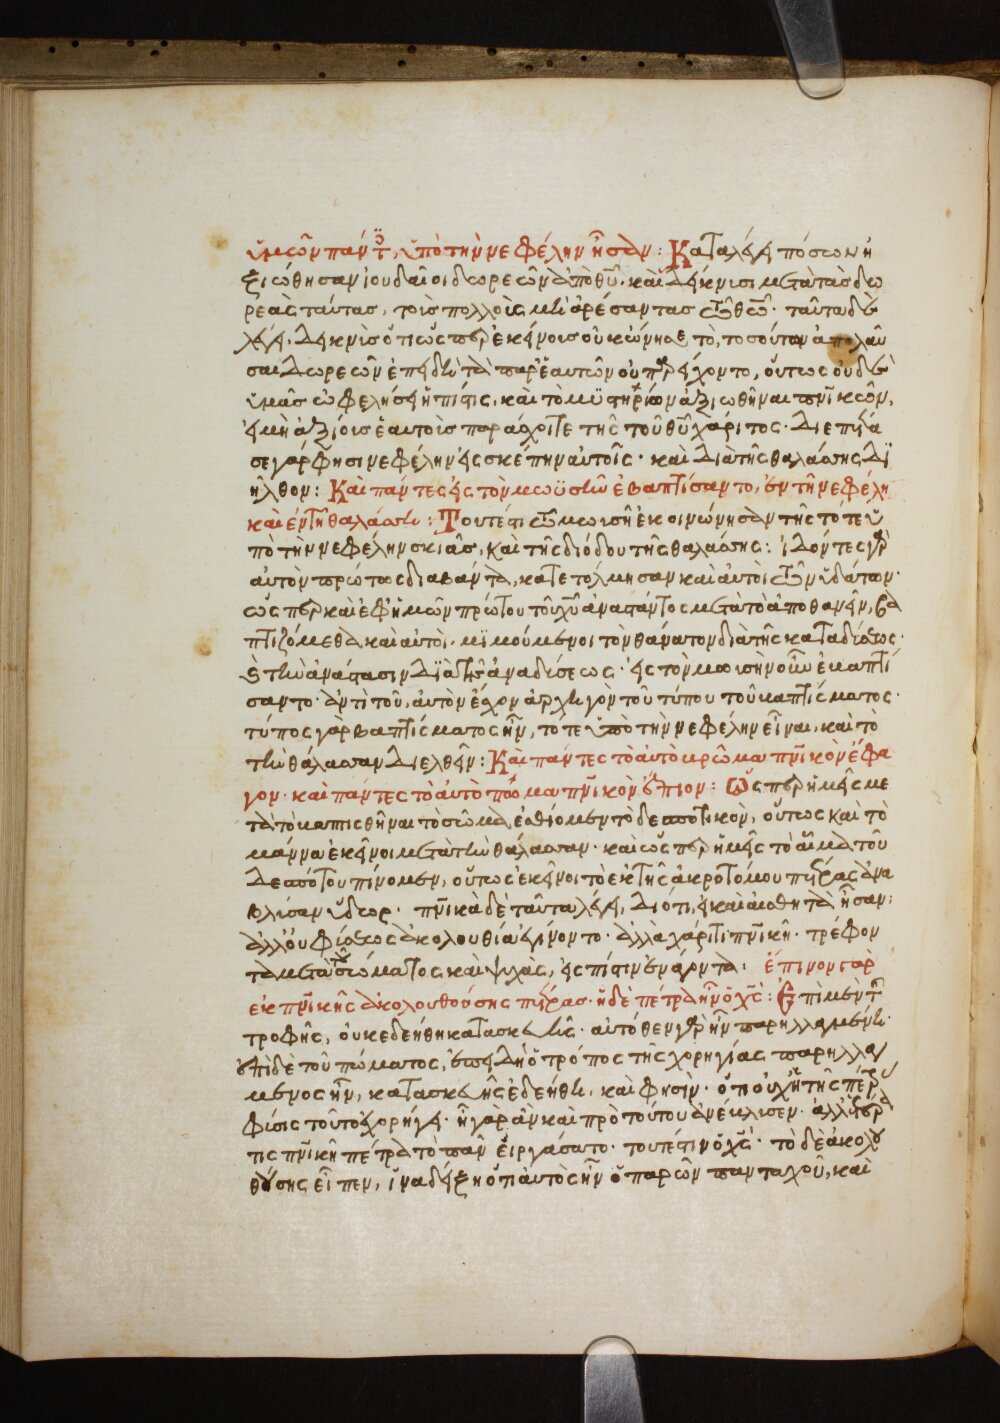 ὑμῶν πάντ(ες), ὑπὸ τὴν νεφέλην ἦσαν: Καταλέγει πόσων ἠ
ξιώθησαν ἰουδαῖοι δωρεῶν ἀπὸ θῦ. καὶ δείκνισι μετὰ τὰς δω
ρεὰς ταύτας, τοῖς πολλοῖς μὴ ἀρέσαντας τῶ θεῶ. ταῦτα δὲ
λέγει, δεικνὺς ὅτι ὥσπερ ἐκείνοις οὐκ ὤνησε, τὸ, τοσούτων ἀπολαῦ
σαι δωρεῶν ἐπειδὴ τὰ παρ' ἑαυτῶν οὐ προσῆγοντο, οὕτως οὐδὲ
ὑμᾶς ὠφελήσει ἡ πίστις, καὶ τὸ μυστηρίων ἀξιωθῆναι πνικῶν,
εἰ μὴ ἀξίοις ἑαυτοῖς παράσχοιτε τῆς τοῦ θῦ χάριτος. διέπτα
σε γάρ φησι νεφέλην εἰς σκέπην αὐτοῖς. καὶ διὰ τῆς θαλάσσης δι
ῆλθον: Καὶ πάντες εἰς τὸν μωϋσῆν ἐβαπτίσαντο, ἐν τῆ νεφέλη
καὶ ἐν τῆ θαλάσση: Τουτέστι τῶ μωισῆ ἐκοινώνησαν τῆς τότε ὑ
πὸ τὴν νεφέλην σκιᾶς, καὶ τῆς διόδου τῆς θαλάσσης: ἰδόντες γὰρ
αὐτὸν πρώτως διαβάντα, κατετόλμησαν καὶ αὐτοὶ τῶν ὑδάτων.
ὥσπερ καὶ ἐφ' ἡμῶν πρώτου τοῦ χῦ ἀναστάντος μετὰ τὸ ἀποθανεῖν, βα
πτιζόμεθα καὶ αὐτοὶ. μιμούμενοι τὸν θάνατον διὰ τῆς καταδύσεως.
καὶ τὴν ἀνάστασιν διὰ τῆς ἀναδύσεως. εἰς τὸν μωισὴν οὖν ἐβαπτί
σαντο. ἀντὶ τοῦ, αὐτὸν ἔχον ἀρχηγὸν τοῦ τύπου τοῦ βαπτίσματος.
τύπος γὰρ βαπτίσματος ἦν, τό τε ὑπὸ τὴν νεφέλην εἶναι, καὶ τὸ
τὴν θάλασσαν διελθεῖν: Καὶ πάντες τὸ αὐτὸ βρῶμα πνικὸν ἔφα
γον. καὶ πάντες τὸ αὐτὸ πόμα πνικὸν ἔπιον: Ὥσπερ ἡμεῖς με
τὰ τὸ βαπτισθῆναι τὸ σῶμα ἐσθίομεν τὸ δεσποτικὸν, οὕτως καὶ τὸ
μάννα ἐκεῖνοι μετὰ τὴν θάλασσαν. καὶ ὥσπερ ἡμεῖς τὸ αἷμα τοῦ
δεσπότου πίνομεν, οὕτως ἐκεῖνοι τὸ ἐκ τῆς ἀκροτόμου πέτρας ἀνα
βλίσαν ὕδωρ. πνικὰ δὲ ταῦτα λέγει, διότι, εἰ καὶ αἰσθητὰ ἦσαν:
ἀλλ' οὐ φύσεως ἀκολουθία ἐγίνοντο. ἀλλὰ χάριτι πνικῆ. τρέφον
τα μετὰ τοῦ σώματος καὶ ψυχὰς, εἰς πίστιν ἐνάγοντα. ἔπινον γὰρ
ἐκ πνικῆς ἀκολουθούσης πέτρας. ἡ δὲ πέτρα ἦν ὁ χς: Ἐπὶ μὲν τῆς
τροφῆς, οὐκ ἐδεήθη κατασκευῆς. αὐτόθεν γὰρ ἦν παρηλλαγμένη.
ἐπὶ δὲ τοῦ πώματος, ἐπειδὴ ὁ τρόπος τῆς χορηγίας παρηλλαγ
μένος ἦν, κατασκευῆς ἐδεήθη. καὶ φησὶν. ὅτι οὐχ' ἡ τῆς πέτρας
φύσις τοῦτο χορήγει. ἦ γὰρ ἂν καὶ πρὸ τούτου ἀνέβλισεν. ἀλλ' ἑτέρα
τις πνικὴ πέτρα τὸ πᾶν εἰργάσατο. τουτέστιν ὁ χς. τὸ δὲ ἀκολου
θούσης εἶπεν, ἵνα δείξη ὅτι αὐτὸς ἦν ὁ παρὼν πανταχοῦ, καὶ